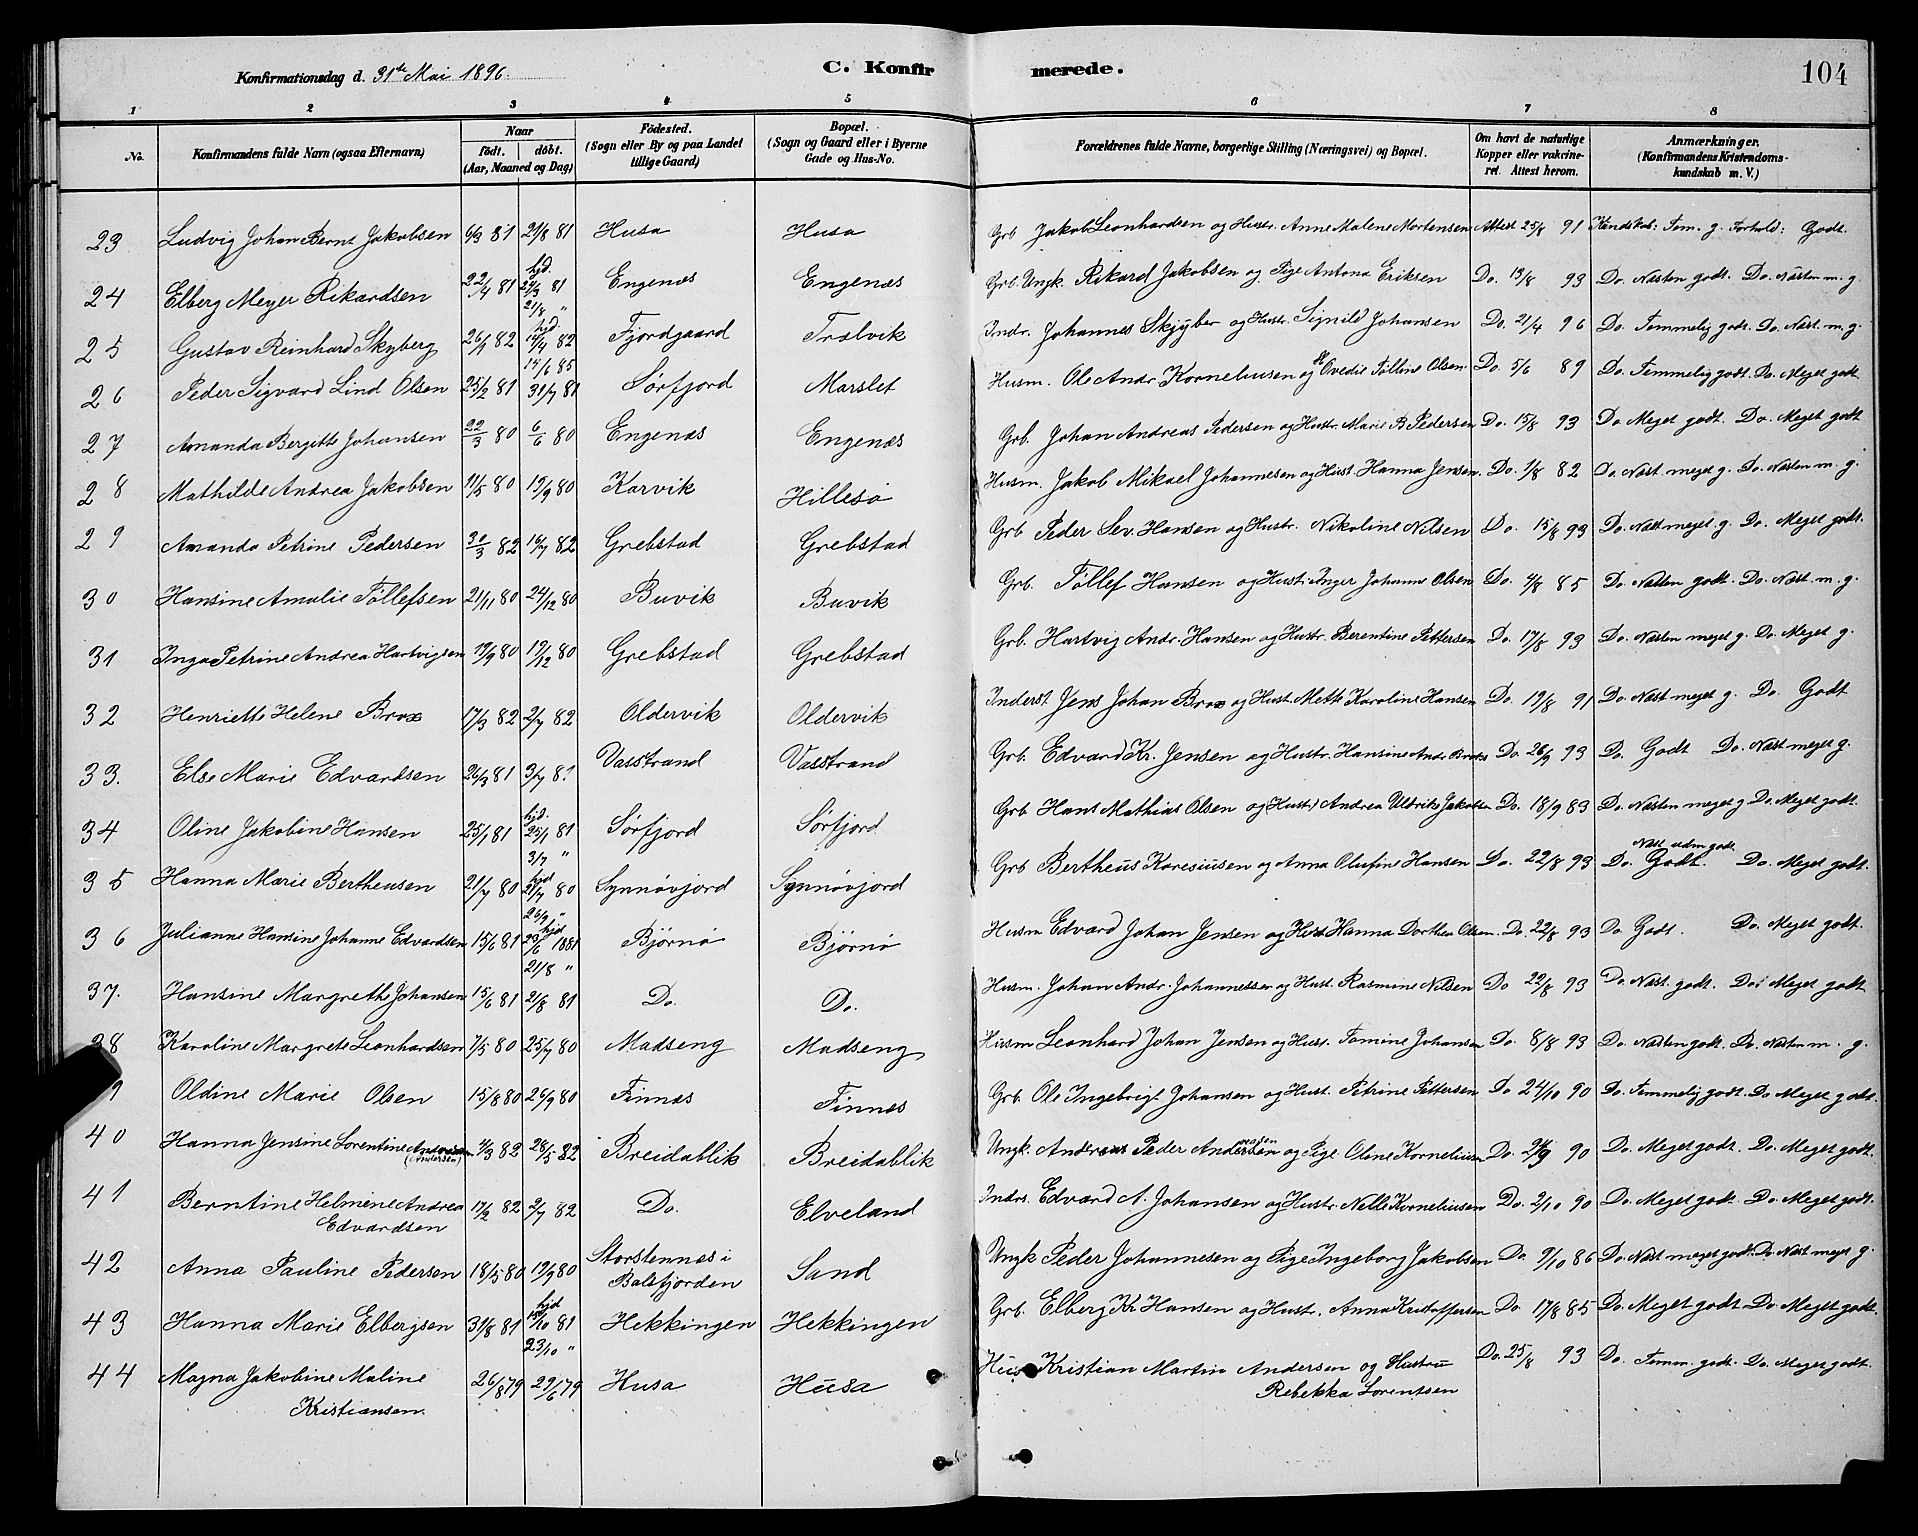 Konfirmationsdag d. 31te Mai 1896.
C. Konfirmerede.
104
1 2 3 4 5 6 7 8
No. Konfirmandens fulde Navn (ogsaa Efternavn) Naar födt. döbt. (Aar, Maaned og Dag) Födested. (Sogn eller By og paa Landet tillige Gaard) Bopæl. (Sogn og Gaard eller i Byerne Gade og Hus-No. Forældrenes fulde Navne, borgerlige Stilling (Næringsvei) og Bopæl. Om havt de naturlige Kopper eller vakcineret. Attest herom. Anmærkninger. (Konfirmandens Kristendomskundskab m. V.)
23 Ludvig Johan Bernt Jakobsen 6/3 81 21/8 81 Husa Husa Grb Jakob Leonhardsen og Hustr. Anne Malene Mortensen Attest 25/8 91 Kundskab: Tem. g. Forhold: Godt.
24 Elberg Meyer Rikardsen 22/4 81 hjd. 81 21/8 " Engenæs Engenæs Grb. Ungk. Rikard Jakobsen og Pige Antona Eriksen Do. 13/8 93 Do. Næsten godt. Do. Næsten m. g.
25 Gustav Reinhard Skyberg 26/1 82 hjd. 82 Fjordgaard Trælvik Indr. Johannes Skjyber og Hustr. Signild Johansen Do. 21/4 96 Do. Temmelig godt. Do. Næst. m. g.
26 Peder Sigvard Lind Olsen 25/2 81 31/7 81 Sørfjord Marslet Husm. Ole Andr. Kornelinusen og Ovedie Tølline Olsen Do. 5/6 89 Do. Temmelig godt. Do. Meget godt
27 Amanda Bergitte Johansen 22/3 80 6/6 80 Engenæs Engenæs Grb. Johan Andreas Pedersen og Hustr. Marie B Pedersen Do. 15/8 93 Do. Meget godt. Do. Meget godt
28 Mathilde Andrea Jakobsen 11/5 80 19/9 80 Karvik Hillesø Husm. Jakob Mikael Johannesen og Hust. Hanna Jensen Do. 1/8 82 Do. Næst. meget g. Do. Næsten m. g.
29 Amanda Petrine Pedersen 30/3 82 16/7 82 Grebstad Grebstad Grb Peder Sev. Hansen og Hustr. Nikoline Nilsen Do. 15/8 93 Do. Næst meget g. Do. Meget godt.
30 Hansine Amalie Tøllefsen 21/11 80 24/12 80 Buvik Buvik Grb. Tøllef Hansen og Hust. Inger Johanne Olsen Do. 4/8 85 Do. Næsten godt. Do. Næst. m. g.
31 Inga Petrine Andrea Hartvigsen 19/9 80 19/12 80 Grebstad Grebstad Grb. Hartvig Andr. Hansen og Hustr. Berentine Pettersen Do. 17/8 93 Do. Næsten meget g. Do. Meget g.
32 Henriette Helene Brox 17/3 82 2/7 82 Oldervik Oldervik Inderst. Jens Johan Brox og Hust. Mette Karoline Hansen Do. 19/8 91 Do. Næst meget g. Do. Godt
33. Else Marie Edvardsen 26/3 81 3/7 81 Vasstrand Vasstrand Grb. Edvard Kr. Jensen og Hustr. Hansine Andr. Do. 26/9 93 Do. Godt Do. Næst meget g.
34 Oline Jakobine Hansen 25/1 81 hjd. 25/1 81 3/7 " Sørfjord Sørfjord Grb Hans Mathias Olsen og Hustr. Andrea Uldrike Do. 18/9 83 Do. Næsten meget g. Do. Meget godt.
35 Hanna Marie Bertheusen 21/7 80 hjd 21/7 80 26/9 " Synnøvjord Synnøvjord Grb Bertheus Karesiusen og Anna Olufine Hansen Do. 22/8 93 Do. Godt. Do. Meget godt.
36 Julianne Hansine Johanne Edvardsen 15/6 81 hjd 1881 21/8 " Bjørnø Bjørnø Husm Edvard Johan Jensen og Hust Hanna Dorthea Olsen Do. 22/8 93 Do. Godt. Do. Meget godt.
37. Hansine Margrethe Johansen 15/6 81 21/8 81 Do. Do. Husm. Johan Andr. Johannessen og Hust. Rasmine Nilsen Do 22/8 93 Do. Næst. godt. Do. Meget godt
38 Karoline Margrete Leonhardsen 7/5 80 25/7 80 Madseng Madseng Husm Leonhard Johan Jensen og Hust. Tomine Johansen Do. 8/8 93 Do. Næsten godt. Do. Næsten m. g.
9 Oldine Marie Olsen 15/8 80 26/9 80 Finnæs Finnæs Grb. Ole Ingebrigt Johansen og Hust. Petrine Pettersen Do 24/10 90 Do. Temmelig godt. Do Meget godt.
40 Hanna Jensine Lorentine (Andersen) 4/3 82 28/5 82 Breidablik Breidablik Ungk. Andreas Peder Andersen og Pige Oline Kornelinusen Do. 90 Do. Meget godt. Do. Meget godt.
41 Berntine Helmine Andrea Edvardsen 17/2 82 2/7 82 Do. Elveland Indrs. Edvard A. Johansen og Hustr. Nelle Kornelinusen Do. 2/10 90 Do. Meget godt. Do. Meget godt.
42 Anna Pauline Pedersen 18/5 80 19/9 80 Storstennæs i Balsfjorden Sand Ungk Peder Johannesen og Pige Ingeborg Jakobsen Do. 9/10 86 Do. Næst meget godt. Do. Næst meget g.
43 Hanna Marie Elbergsen 31/8 81 hjd 81 23/10 " Hekkingen Hekkingen Grb. Elberg Kr. Hansen og Hust. Anna Kristoffersen Do. 17/8 85 Do. Meget godt. Do. Meget godt
44 Magna Jakobine Maline Kristiansen. 26/8 79 29/6 79 Husa Husa Kristian Martin Andersen og Hustru Rebekka Lorentsen Do. 25/8 93 Do. Temm. godt. Do. Meget godt.